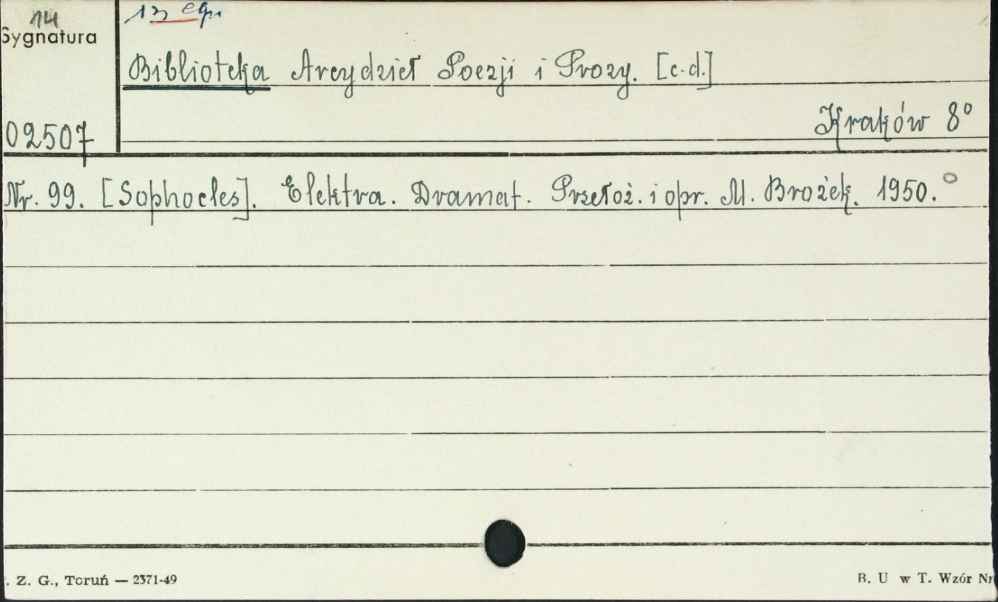 14 13 egz.
Sygnatura
Biblioteka Arcydzieł Poezji i Prozy. [c.d.]
02507 Kraków 8°
Nr. 99. [Sophocles]. Elektra. Dramat. Przełoż. i opr. M. Brożek. 1950.
. Z. G., Toruń — 2371-49 B. U w T. Wzór Nr